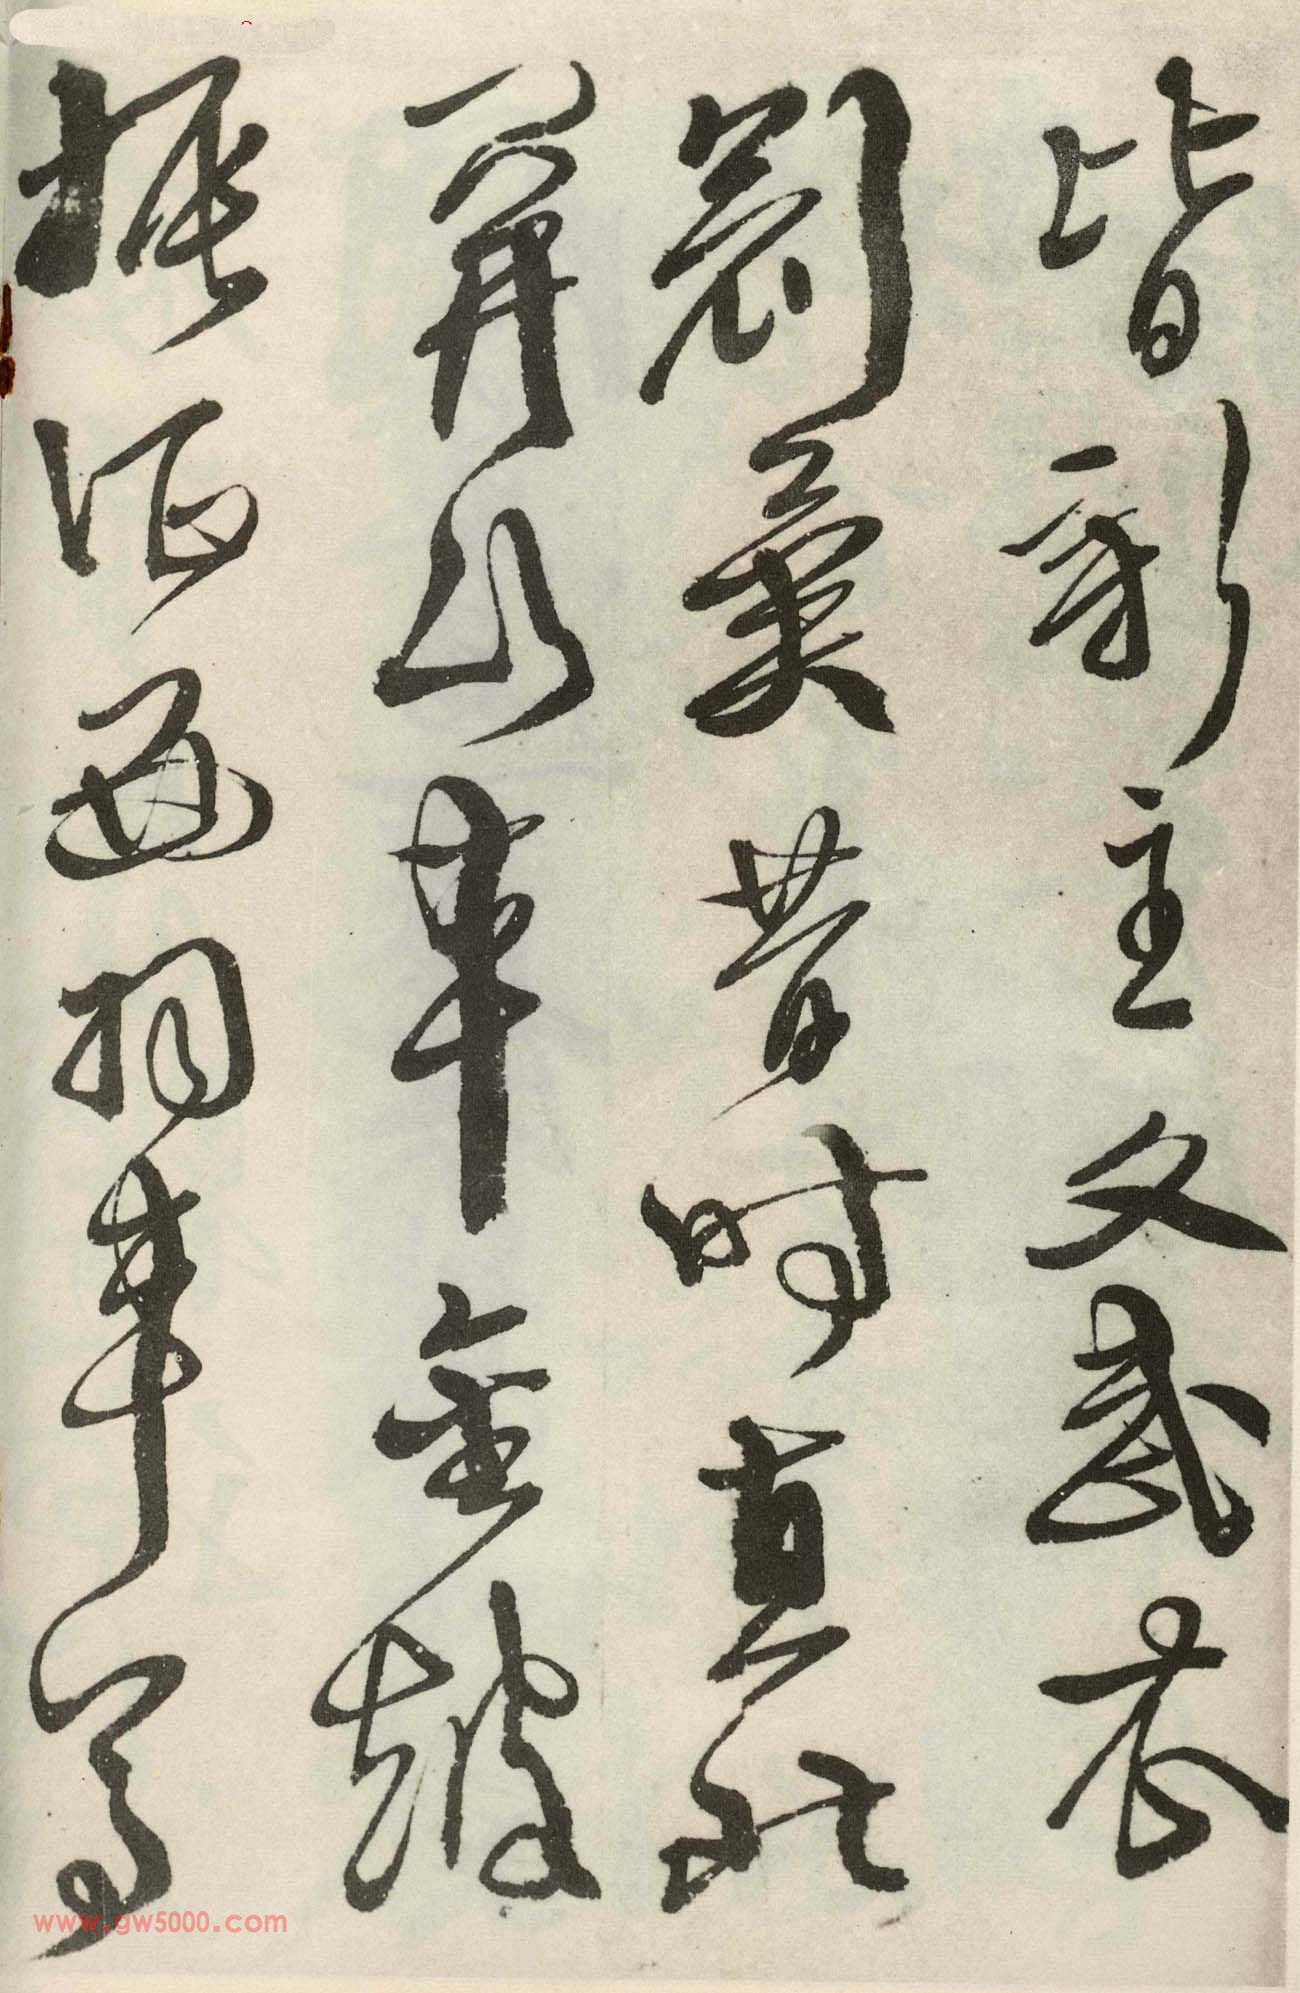 皆新主文武衣
冠異昔時直北
關山車金皷
振征西羽車馬
www.gw5000.com